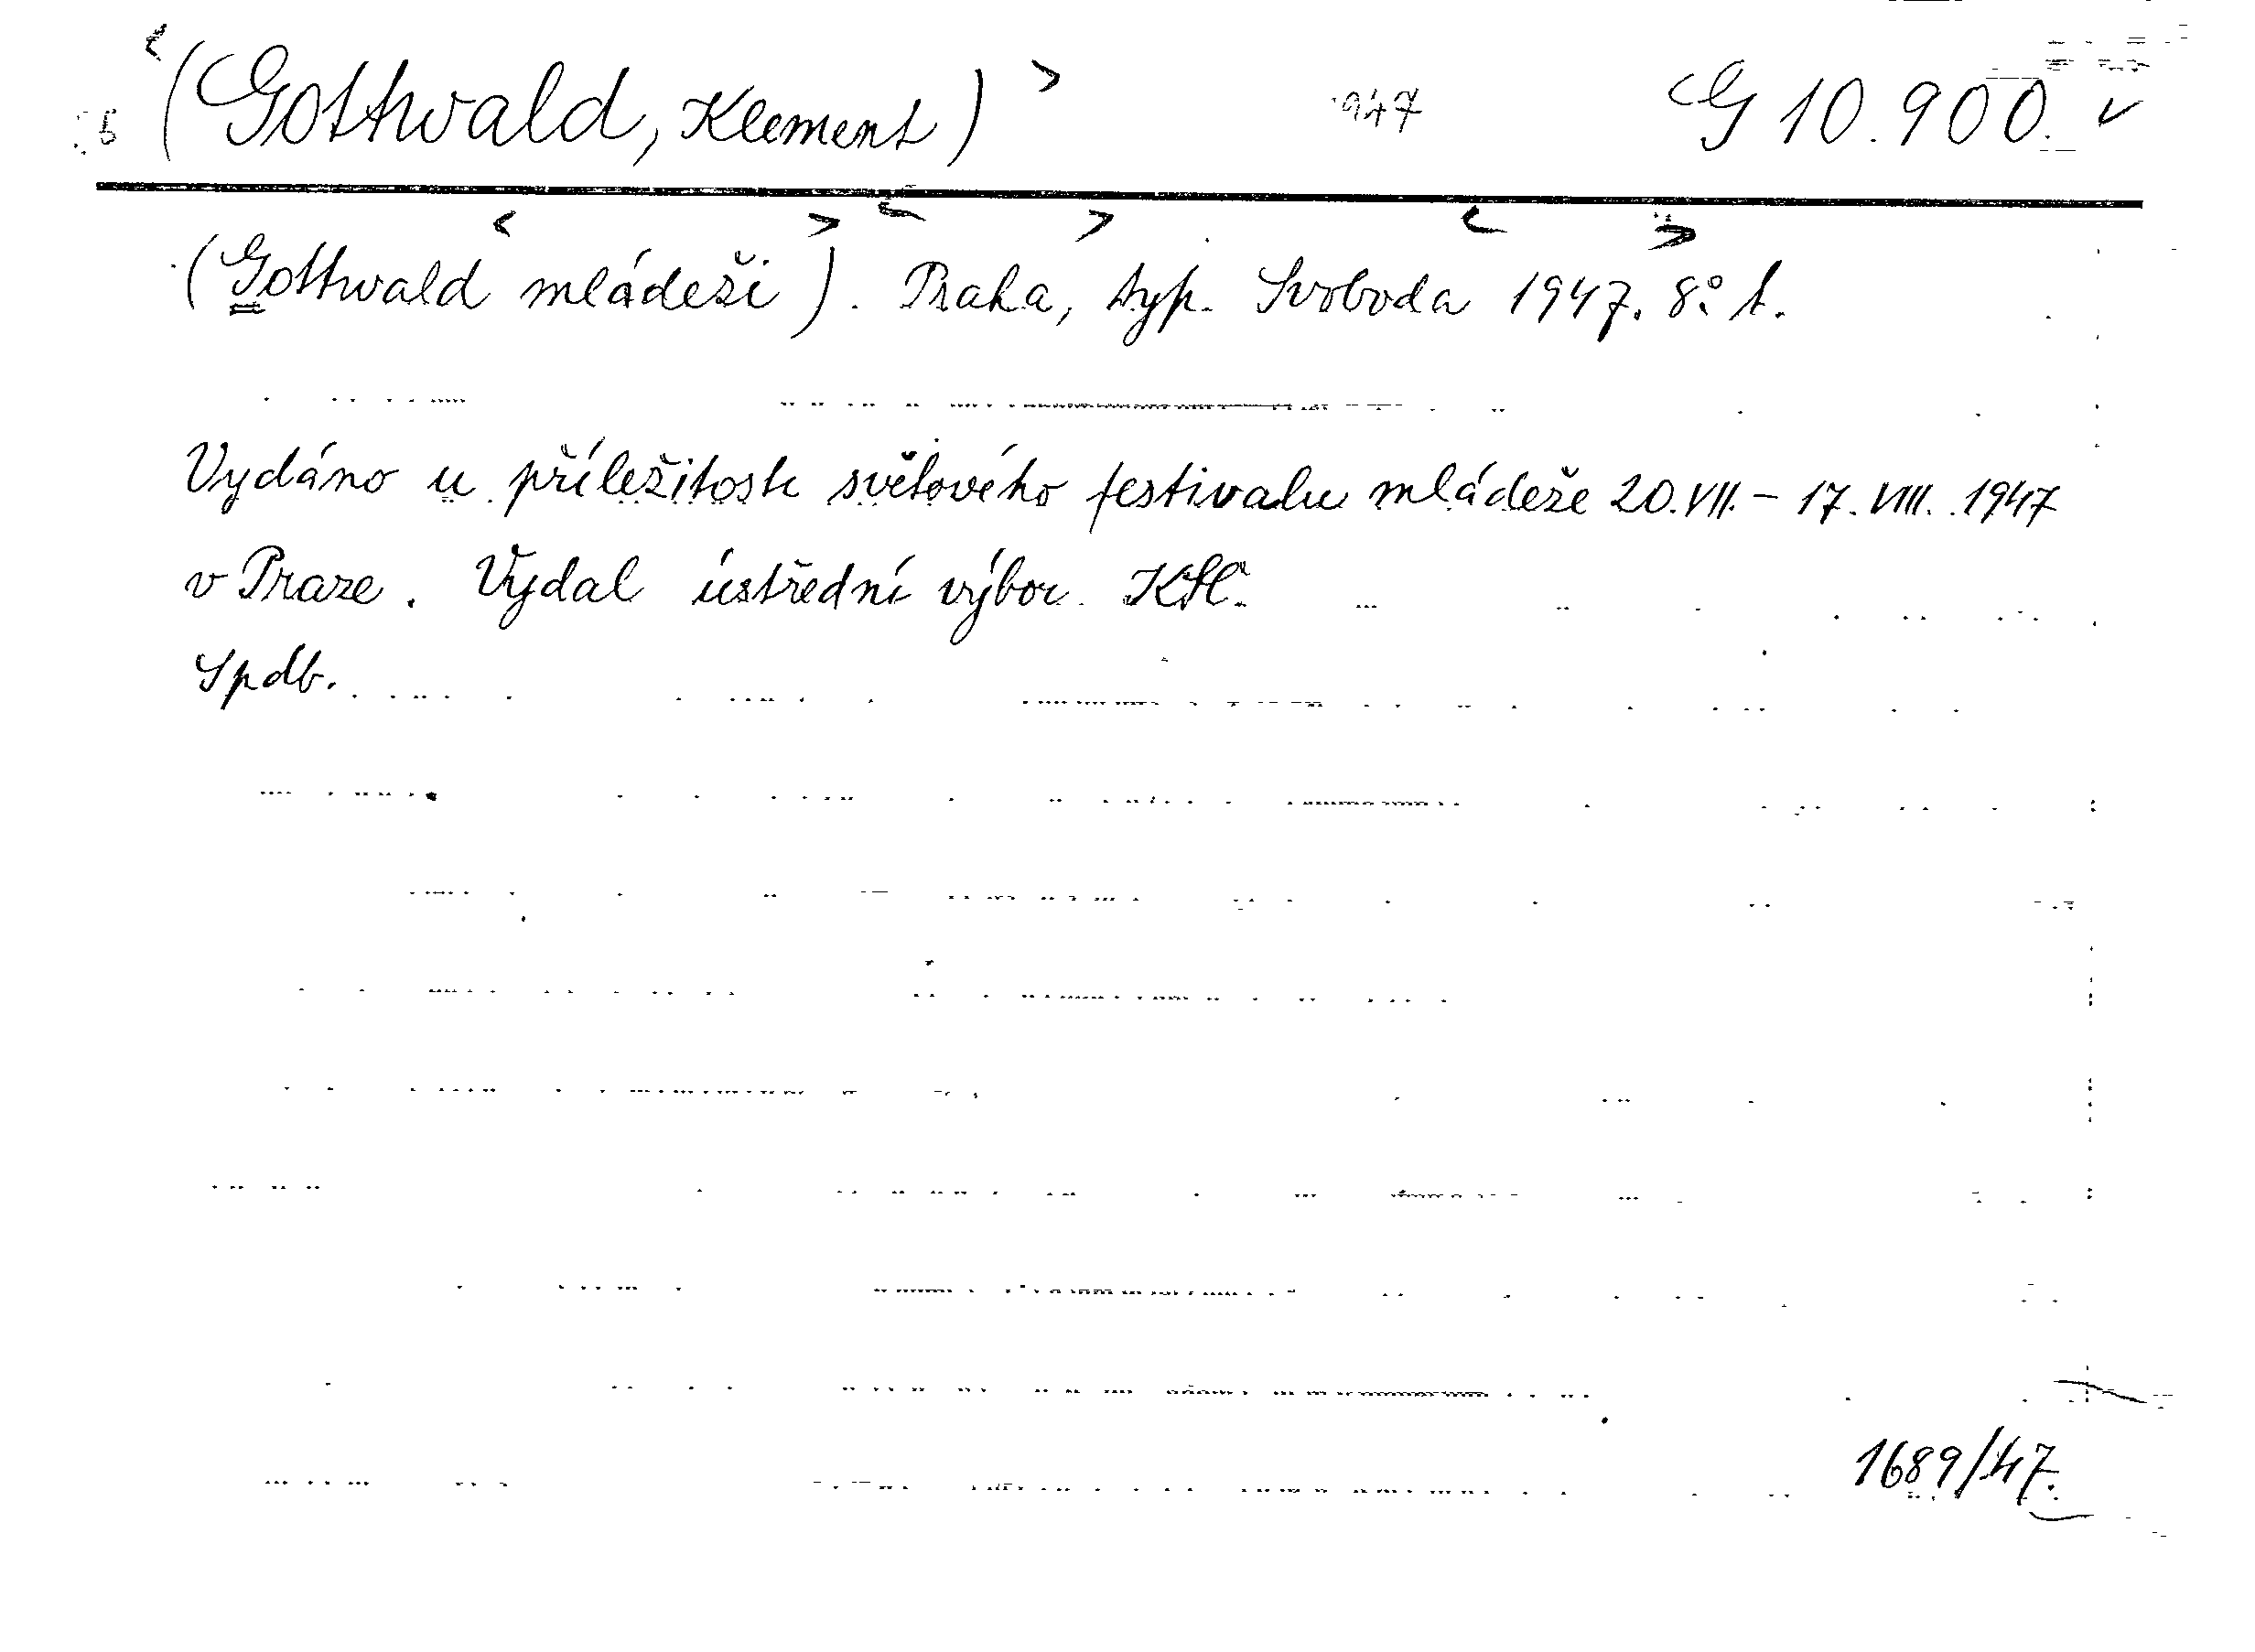 (Gottwald, Klement) 947 G 10.900. v
(Gottwald mládeži). Praha, typ. Svoboda 1947. 8° t.
Vydáno u příležitosti světového festivalu mládeže 20.VII. – 17.VIII. 1947
v Praze. Vydal ústřední výbor
Spdb.
1689/47.